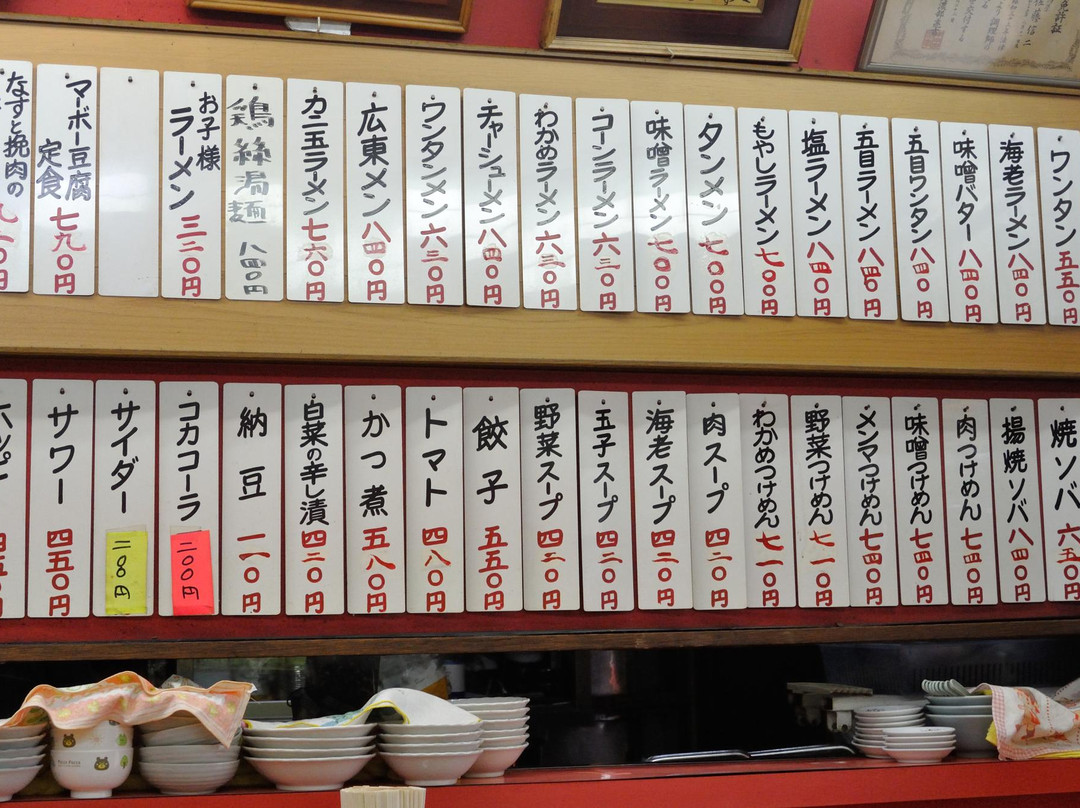 ワンタン 五五〇円
海老ラーメン 八四〇円
味噌バター 八四〇円
五目ワンタン 八四〇円
五目ラーメン 八四〇円
塩ラーメン 八四〇円
もやしラーメン 七〇〇円
タンメン 七〇〇円
味噌ラーメン 七〇〇円
コーンラーメン 六三〇円
わかめラーメン 六三〇円
チャーシューメン 八四〇円
ワンタンメン 六三〇円
広東メン 八四〇円
カニ玉ラーメン 七六〇円
鶏絲湯麺 八四〇円
お子様
ラーメン 三二〇円
マーボー豆腐
定食 七九〇円
なすと挽肉の
焼ソバ 六五〇円
揚焼ソバ 八四〇円
肉つけめん 七四〇円
味噌つけめん 七四〇円
メンマつけめん 七四〇円
野菜つけめん 七一〇円
わかめつけめん 七一〇円
肉スープ 四二〇円
海老スープ 四二〇円
玉子スープ 四二〇円
野菜スープ 四二〇円
餃子 五五〇円
トマト 四八〇円
かつ煮 五八〇円
白菜の辛し漬 四二〇円
納豆 一一〇円
コカコーラ 二〇〇円
サイダー 二〇〇円
サワー 四五〇円
ホッピー